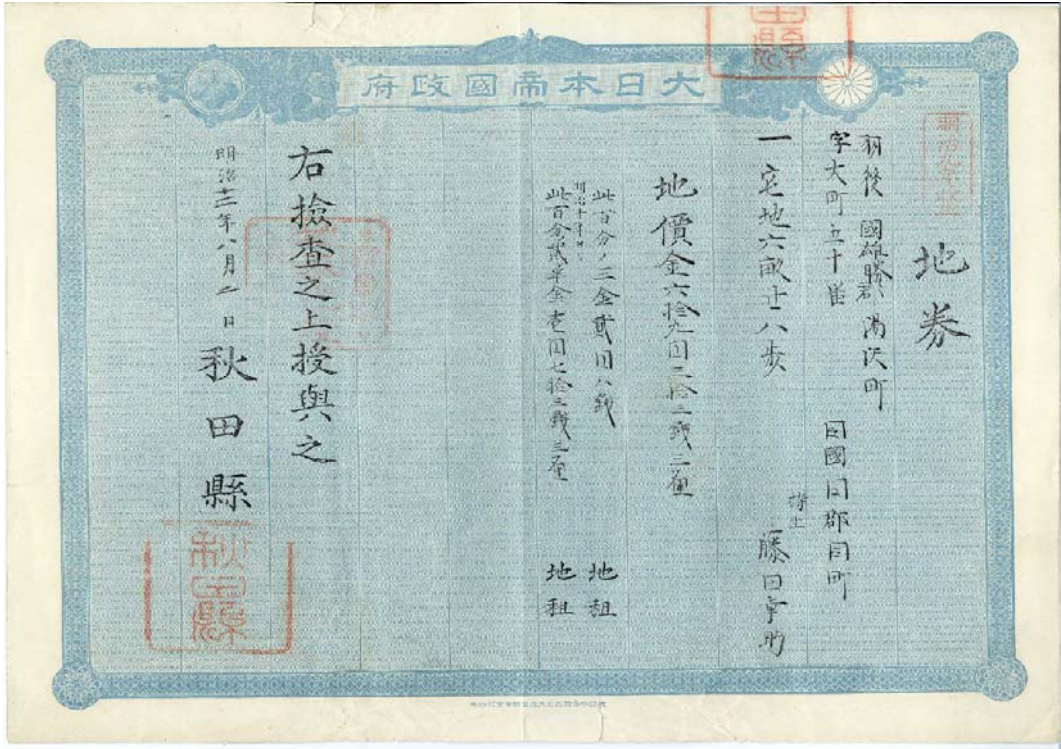 大日本帝國政府
地券
羽後國雄勝郡湯沢町
字大町五十
一宅地六畝十八歩
同國同郡同町
持主 藤田幸助
地價金六拾九円三拾三銭三厘
此百分ノ三金貳円八銭 地租
明治十年ヨリ
此百分貳半金壱円七拾三銭三厘 地租
右撿査之上授與之
明治十三年八月二日 秋田縣
秋田縣